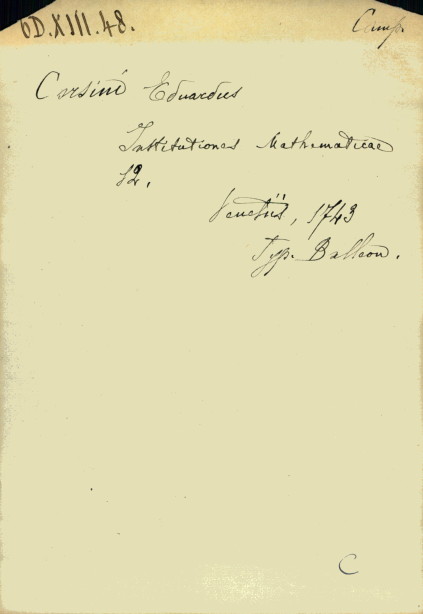 6D.XIII.48. Camp.
Corsini Eduardus
Institutiones Mathematicae
12.
Venetiis, 1743
Typ. Balleon.
C